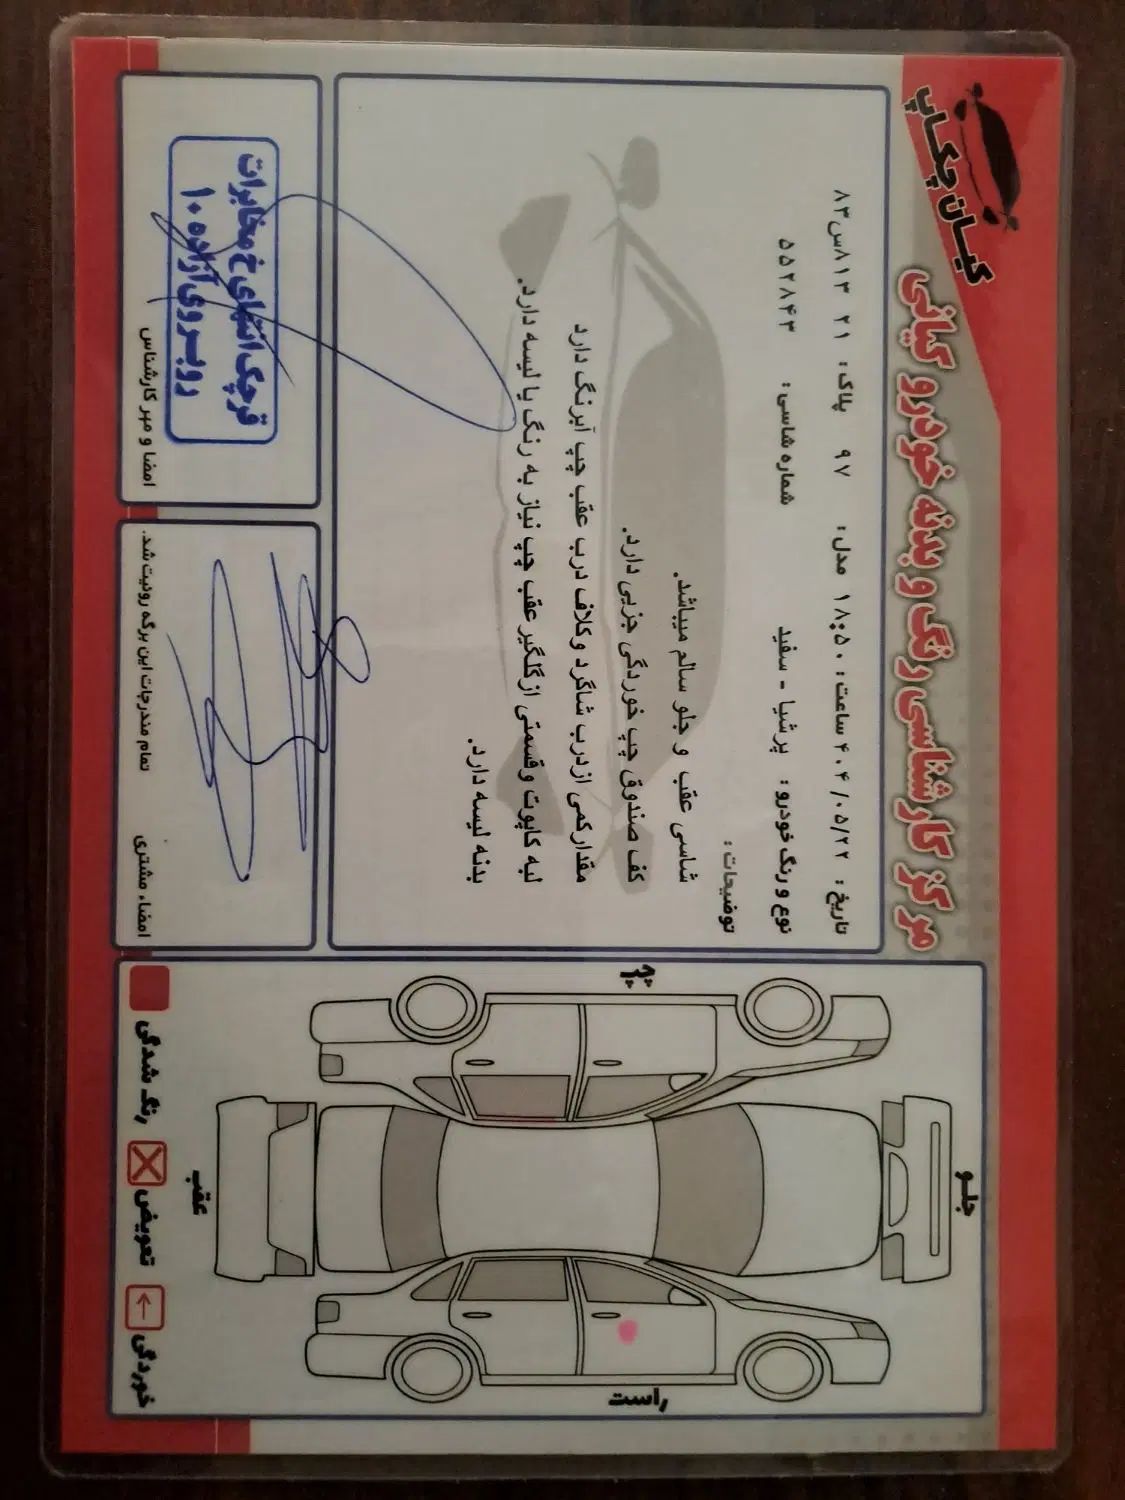 کیان چکاپ
مرکز کارشناسی رنگ و بدنه خودرو کیانی
تاریخ : ۴۰۴/۰۵/۲۲ ساعت : ۱۸:۵۰ مدل : ۹۷ پلاک : ۲۱ ۸۱۳س۸۳
نوع و رنگ خودرو : پرشیا - سفید شماره شاسی : ۵۵۲۸۴۳
توضیحات :
شاسی عقب و جلو سالم میباشد.
کف صندوق چپ خوردگی جزیی دارد.
مقدارکمی ازدرب شاگرد وکلاف درب عقب چپ آبرنگ دارد
لبه کاپوت وقسمتی ازگلگیر عقب چپ نیاز به رنگ یا لیسه دارد.
بدنه لیسه دارد.
قرچک انتهای خ مخابرات
روبروی آزاده ۱۰
امضا و مهر کارشناس
تمام مندرجات این برگه روئیت شد.
امضاء مشتری
چپ
جلو
عقب
راست
رنگ شدگی
تعویض
خوردگی